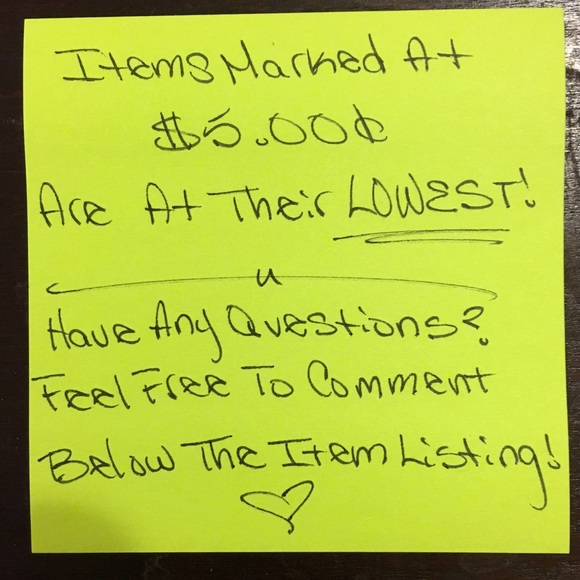 Items Marked At
$5.00¢
Are At Their LOWEST!
Have Any Questions?
Feel Free To Comment
Below The Item Listing!